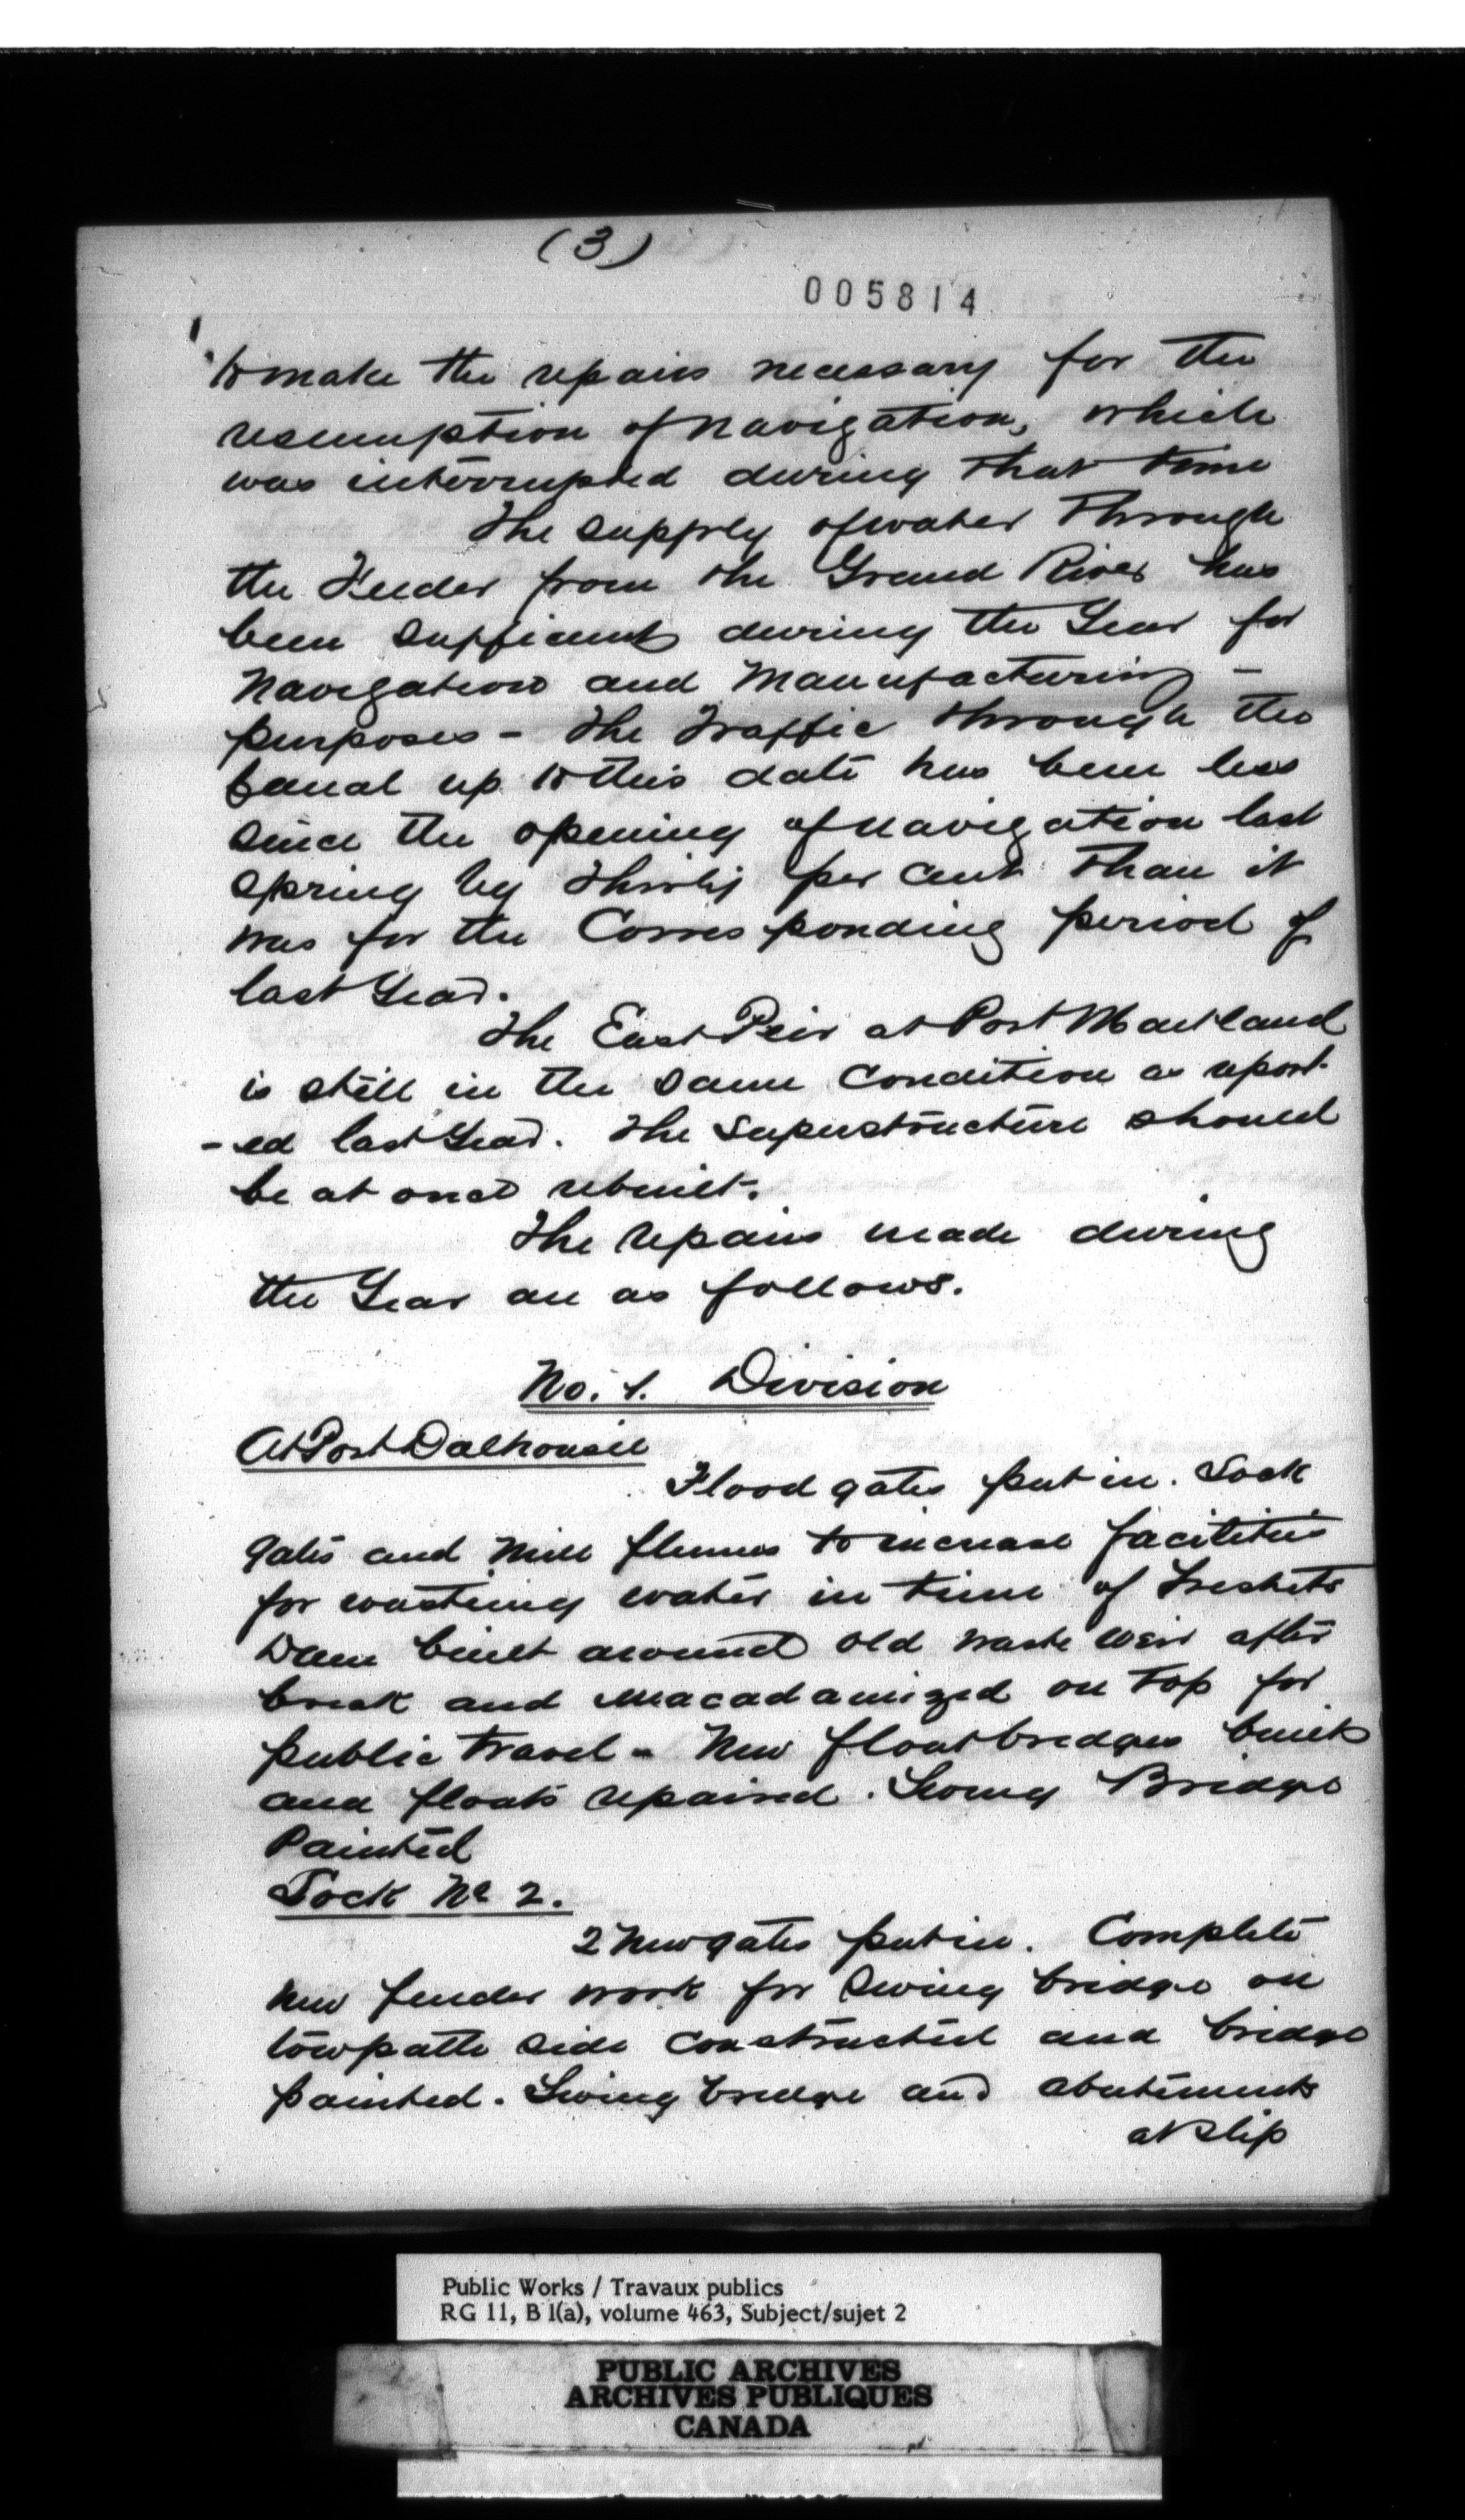 (3)
005814
to make the repairs necessary for the
resumption of navigation, which
was interrupted during that time
The supply of water through
the Feeder from the Grand River has
been sufficient during the Year for
Navigation and Manufacturing -
purposes - The Traffic through the
Canal up to this date has been less
since the opening of navigation last
Spring by Thirty per cent than it
was for the Corresponding period of
last Year.
The East Peir at Port Maitland
is still in the same condition as report-
-ed last Year. The Superstructure should
be at once rebuilt.
The repairs made during
the Year are as follows.
No. 1. Division
At Port Dalhousie
Flood gates put in. Lock
gates and Mill flumes to increase facilities
for wasting water in time of freshets
Dam built around old waste weir after
break and Macadamized on top for
public travel - New float bridges built
and floats repaired. Swing Bridge
Painted
Lock No 2.
2 New gates put in. Complete
new fender work for Swing bridge on
towpath side constructed and bridge
painted. Swing bridge and abutments
at Slip
Public Works / Travaux publics
RG 11, B 1(a), volume 463, Subject/sujet 2
PUBLIC ARCHIVES
ARCHIVES PUBLIQUES
CANADA